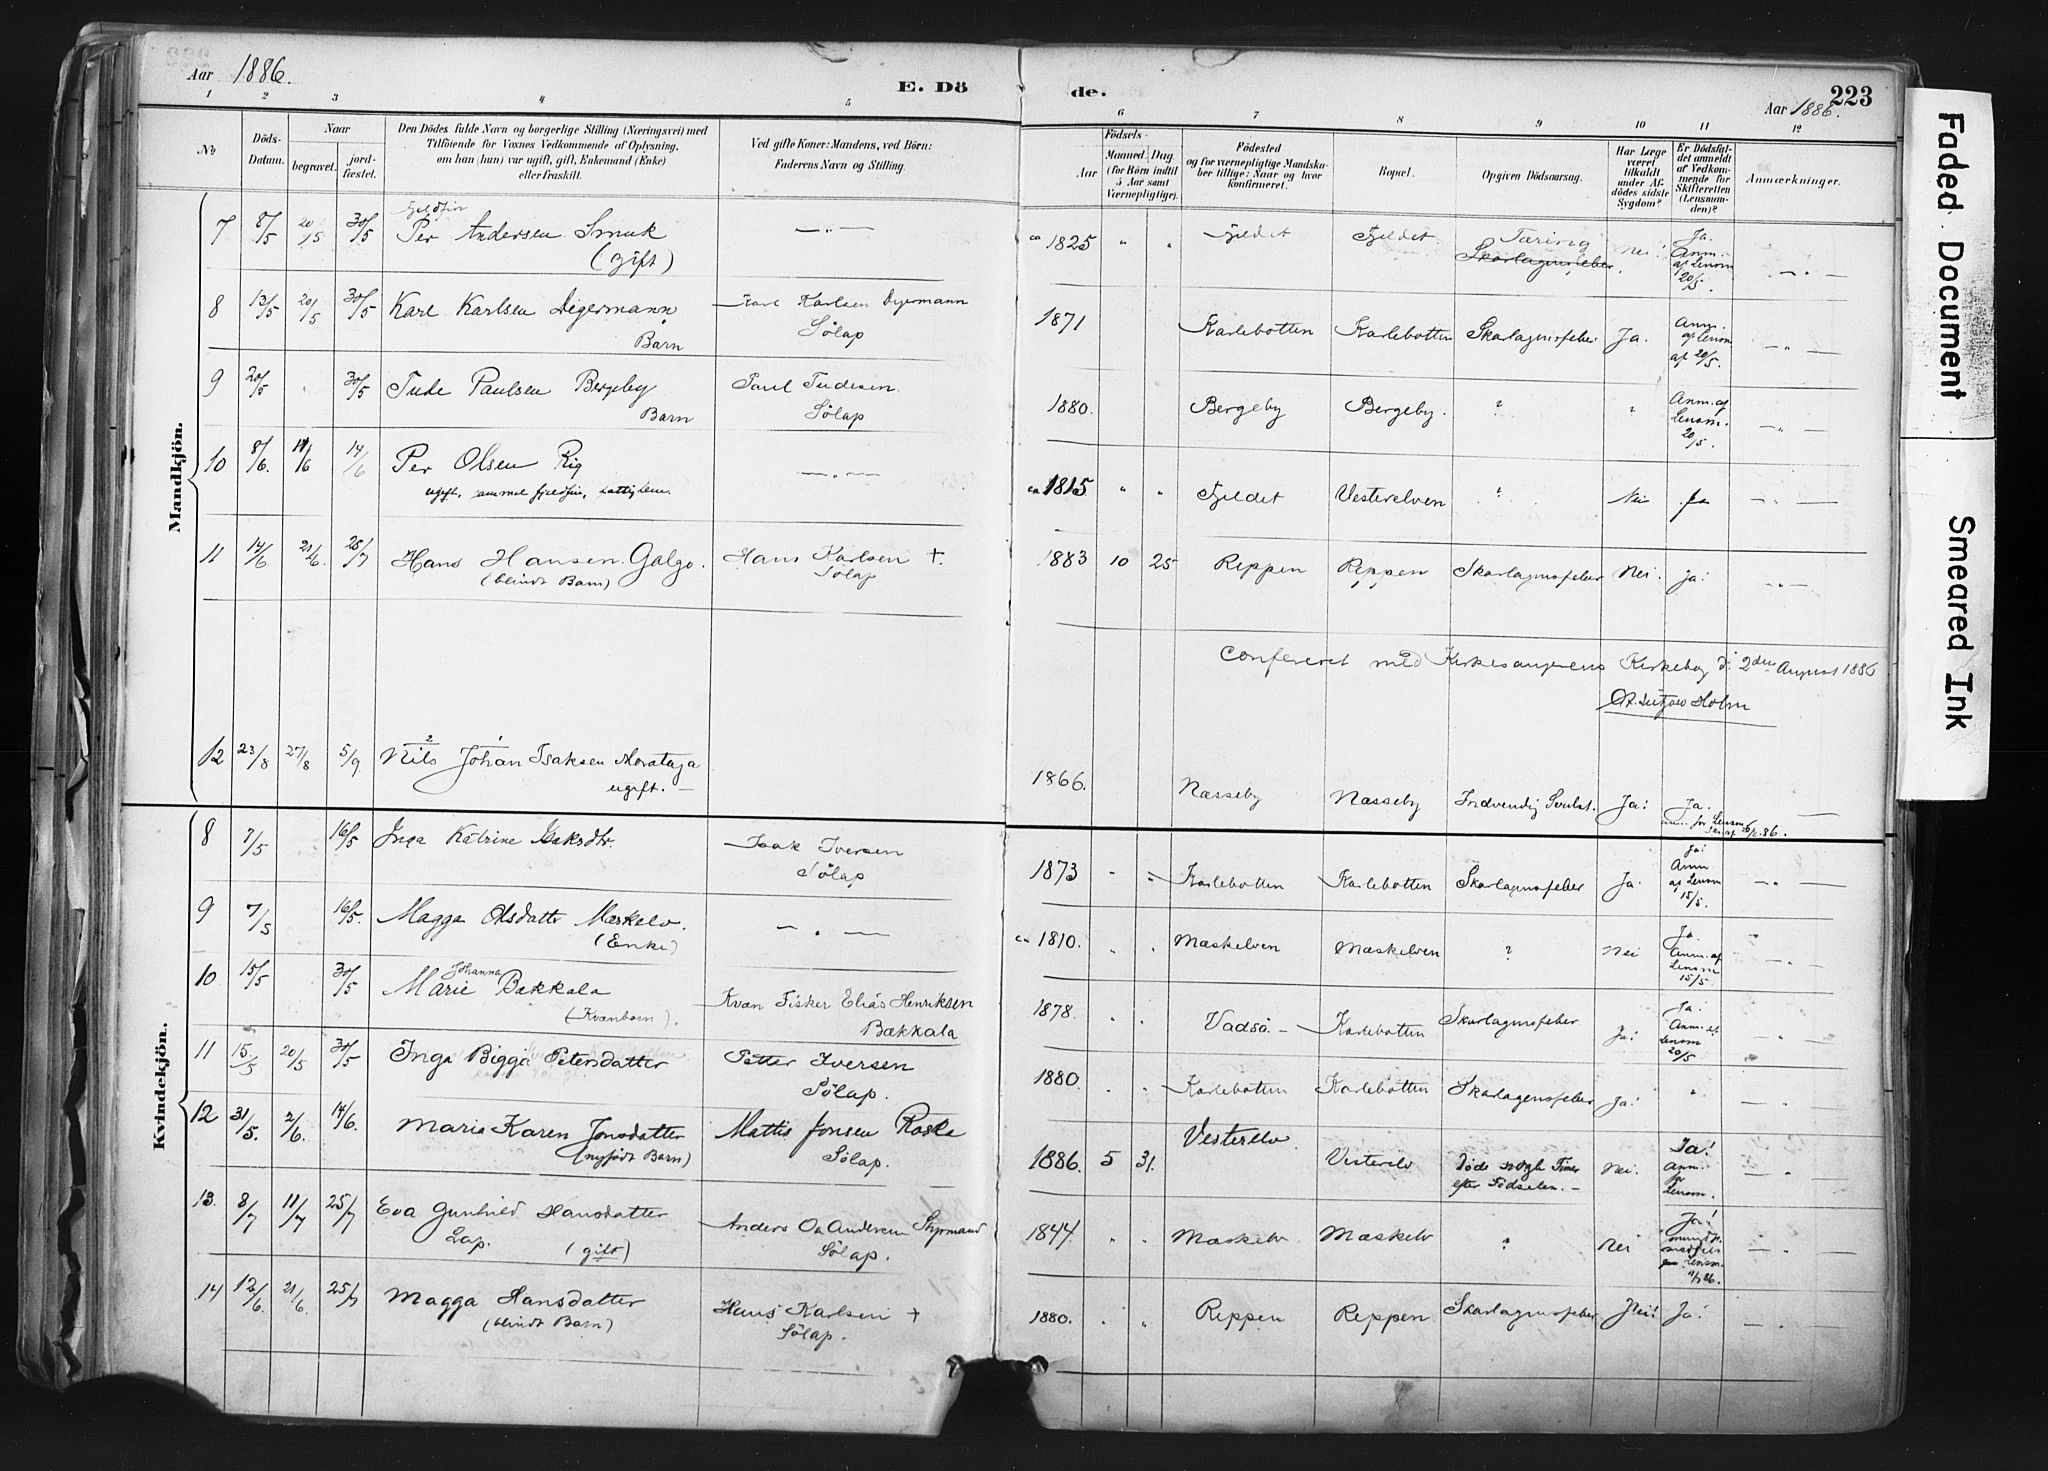 Aar 1886.
E. Dö
de.
223
Aar 1886.
1 2 3 4 5 6 7 8 9 10 11 12
No
Döds-Datum.
Naar
begravet.
jord-fæstet.
Den Dödes fulde Navn og borgerlige Stilling (Næringsvei) med
Tilföiende for Voxnes Vedkommende af Oplysning,
om han (hun) var ugift, gift, Enkemand (Enke)
eller fraskilt.
Ved gifte Koner: Mandens, ved Börn:
Faderens Navn og Stilling.
Födsels-
Aar
Maaned. Dag
(for Börn indtil
5 Aar samt
Værnepligtige).
Födested
og for værnepligtige Mandska-
ber tillige: Naar og hvor
konfirmeret.
Bopæl.
Opgiven Dödsaarsag.
Har Læge
været
tilkaldt
under Af-
dödes sidste
Sygdom?
Er Dödsfal-
det anmeldt
af Vedkom-
mende for
Skifteretten
(Lensman-
den)?
Anmærkninger.
Mandkjön.
Fjeldfin
7 8/5 20/5 30/5 Per Andersen Smuk
(gift)
— " —
ca 1825 " " Fjeldet Fjeldet. Tæring
Skarlagensfeber. Nei! Ja.
Anm.
af Lensm
20/5.
— " —
8 13/5 20/5 30/5 Karl Karlsen Digermann
Barn
Karl Karlsen Digermann
Sölap
1871 Karlebotten Karlebotten Skarlagensfeber Ja. Anm.
af Lensm
af 20/5.
— " —
9 20/5 30/5 Tude Paulsen Bergeby
Barn
Paul Tudesen
Sölap
1880. Bergeby Bergeby. ? " Anm. af
Lensm.
20/5.
— " —
10 8/6. 11/6 14/6 Per Olsen Rig
ugift, gammel fjeldfin,
— " —
ca 1815 " " Fjeldet Vesterelven ? Nei Ja — " —
11 14/6 21/6. 25/7 Hans Hansen Galgo.
(blindt Barn)
Hans Karlsen +
Sölap
1883 10 25 Reppen Reppen Skarlagensfeber Nei. Ja! — " —
Confereret med Kirkesangerens Kirkebog d. 2den August 1886
Lützow Holm
2 1
12 23/8 27/8 5/9. Nils Johan Isaksen
ugift. —
1866. Næsseby Næsseby Indvendig Svulst. Ja! Ja.
for Lensm.
86.
Kvindekjön.
8 7/5 16/5 Inga Katrine Isaksdtr.
Isak Iversen
Sölap
1873 " " Karlebotten Karlebotten Skarlagensfeber Ja. Ja!
Anm.
af Lensm
15/5.
— " —
9 7/5 16/5. Magga Olsdatter Mæskelv.
(Enke)
— " —
ca 1810. " " Mæskelven Mæskelven ? Nei Ja.
Anm. af
Lensm
15/5.
— " —
Johanna
10 15/5 30/5 Marie Bækkala
(Kvænbarn).
Kvæn Fisker Elias Henriksen
Bækkala
1878. " " Vadsö. — Karlebotten Skarlagensfeber Ja! Ja!
Anm. af
Lensm
20/5
— " —
11 15./5 20/5 30/5 Inga Bigga Petersdatter
Petter Iversen
Sölap.
1880. " " Karlebotten Karlebotten Skarlagensfeber Ja! " — " —
12 31/5. 2/6. 14/6. Maria Karen Jonsdatter
(nyfödt Barn)
Mattis Jonsen Roska
Sölap.
1886. 5 31. Vesterelv Vesterelv Döde nogle Timer
efter Födselen. — Nei. Ja!
Anm.
for
Lensm.
— " —
13. 8/7 11/7 25/7 Eva Gunhild Hansdatter
Lap. (gift)
Anders Andersen
Sölap.
1844. " " Mæskelv Mæskelv ? Nei Ja!
Lensm.
— " —
14 12/6. 21/6. 25/7 Magga Hansdatter
(blindt Barn)
Hans Karlsen +
Sölap.
1880. " " Reppen Reppen Skarlagensfeber Nei! Ja! — " —
Faded Document
Smeared Ink